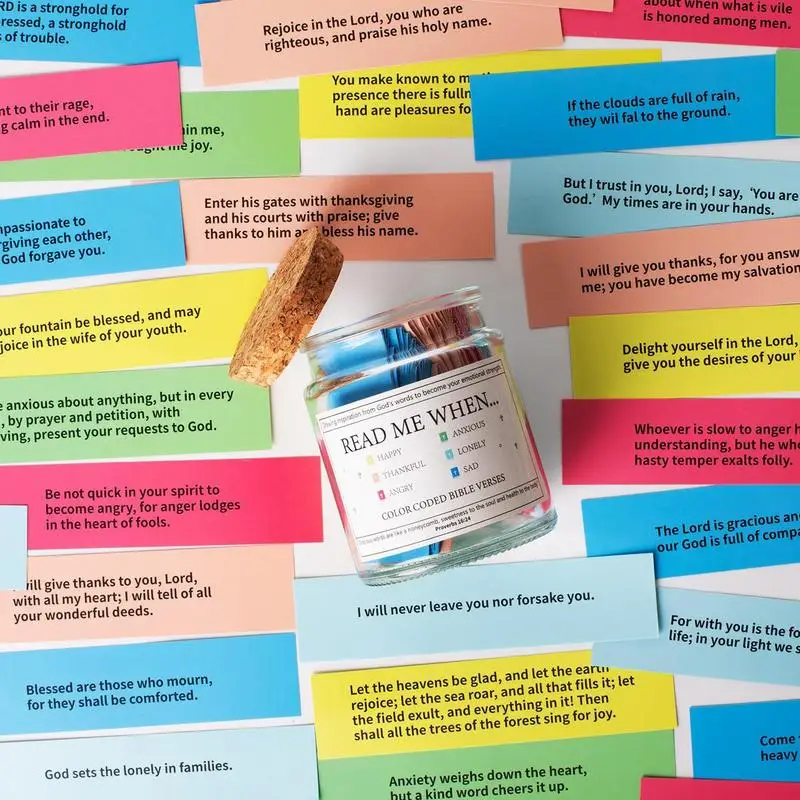 RD is a stronghold for
ressed, a stronghold
s of trouble.
Rejoice in the Lord, you who are
righteous, and praise his holy name.
about when what is vile
is honored among men.
nt to their rage,
g calm in the end.
You make known to m
presence there is fulln
hand are pleasures fo
If the clouds are full of rain,
they wil fal to the ground.
in me,
me joy.
Enter his gates with thanksgiving
and his courts with praise; give
thanks to him an bless his name.
But I trust in you, Lord; I say, ‘You are
God.’ My times are in your hands.
mpassionate to
rgiving each other,
God forgave you.
I will give you thanks, for you answ
me; you have become my salvation
our fountain be blessed, and may
joice in the wife of your youth.
Delight yourself in the Lord,
give you the desires of your
e anxious about anything, but in every
, by prayer and petition, with
ving, present your requests to God.
Drawing inspiration from God's words to become your emotional strength
READ ME WHEN...
HAPPY
THANKFUL
ANGRY
ANXIOUS
LONELY
SAD
COLOR CODED BIBLE VERSES
words are like a honeycomb, sweetness to the soul and health to the body
Proverbs 16:24
Whoever is slow to anger h
understanding, but he who
hasty temper exalts folly.
Be not quick in your spirit to
become angry, for anger lodges
in the heart of fools.
The Lord is gracious an
our God is full of compa
will give thanks to you, Lord,
with all my heart; I will tell of all
your wonderful deeds.
I will never leave you nor forsake you.
For with you is the fo
life; in your light we s
Blessed are those who mourn,
for they shall be comforted.
Let the heavens be glad, and let the earth
rejoice; let the sea roar, and all that fills it; let
the field exult, and everything in it! Then
shall all the trees of the forest sing for joy.
Come
heavy
God sets the lonely in families.
Anxiety weighs down the heart,
but a kind word cheers it up.